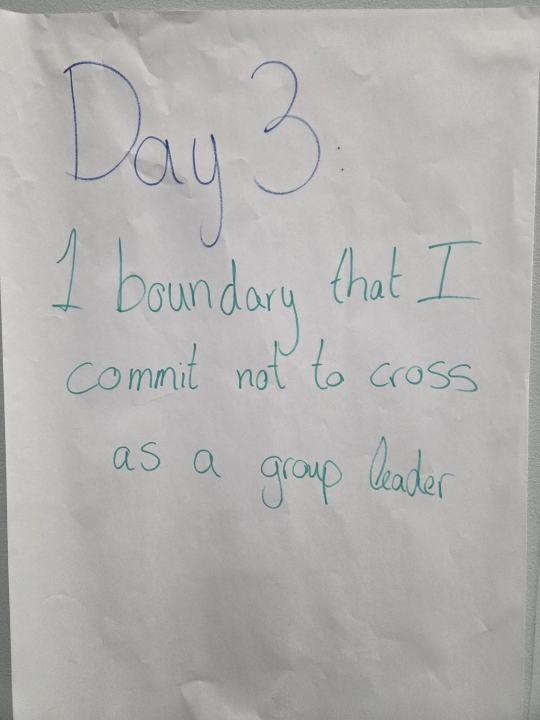 Day 3:
1 boundary that I
commit not to cross
as a group leader